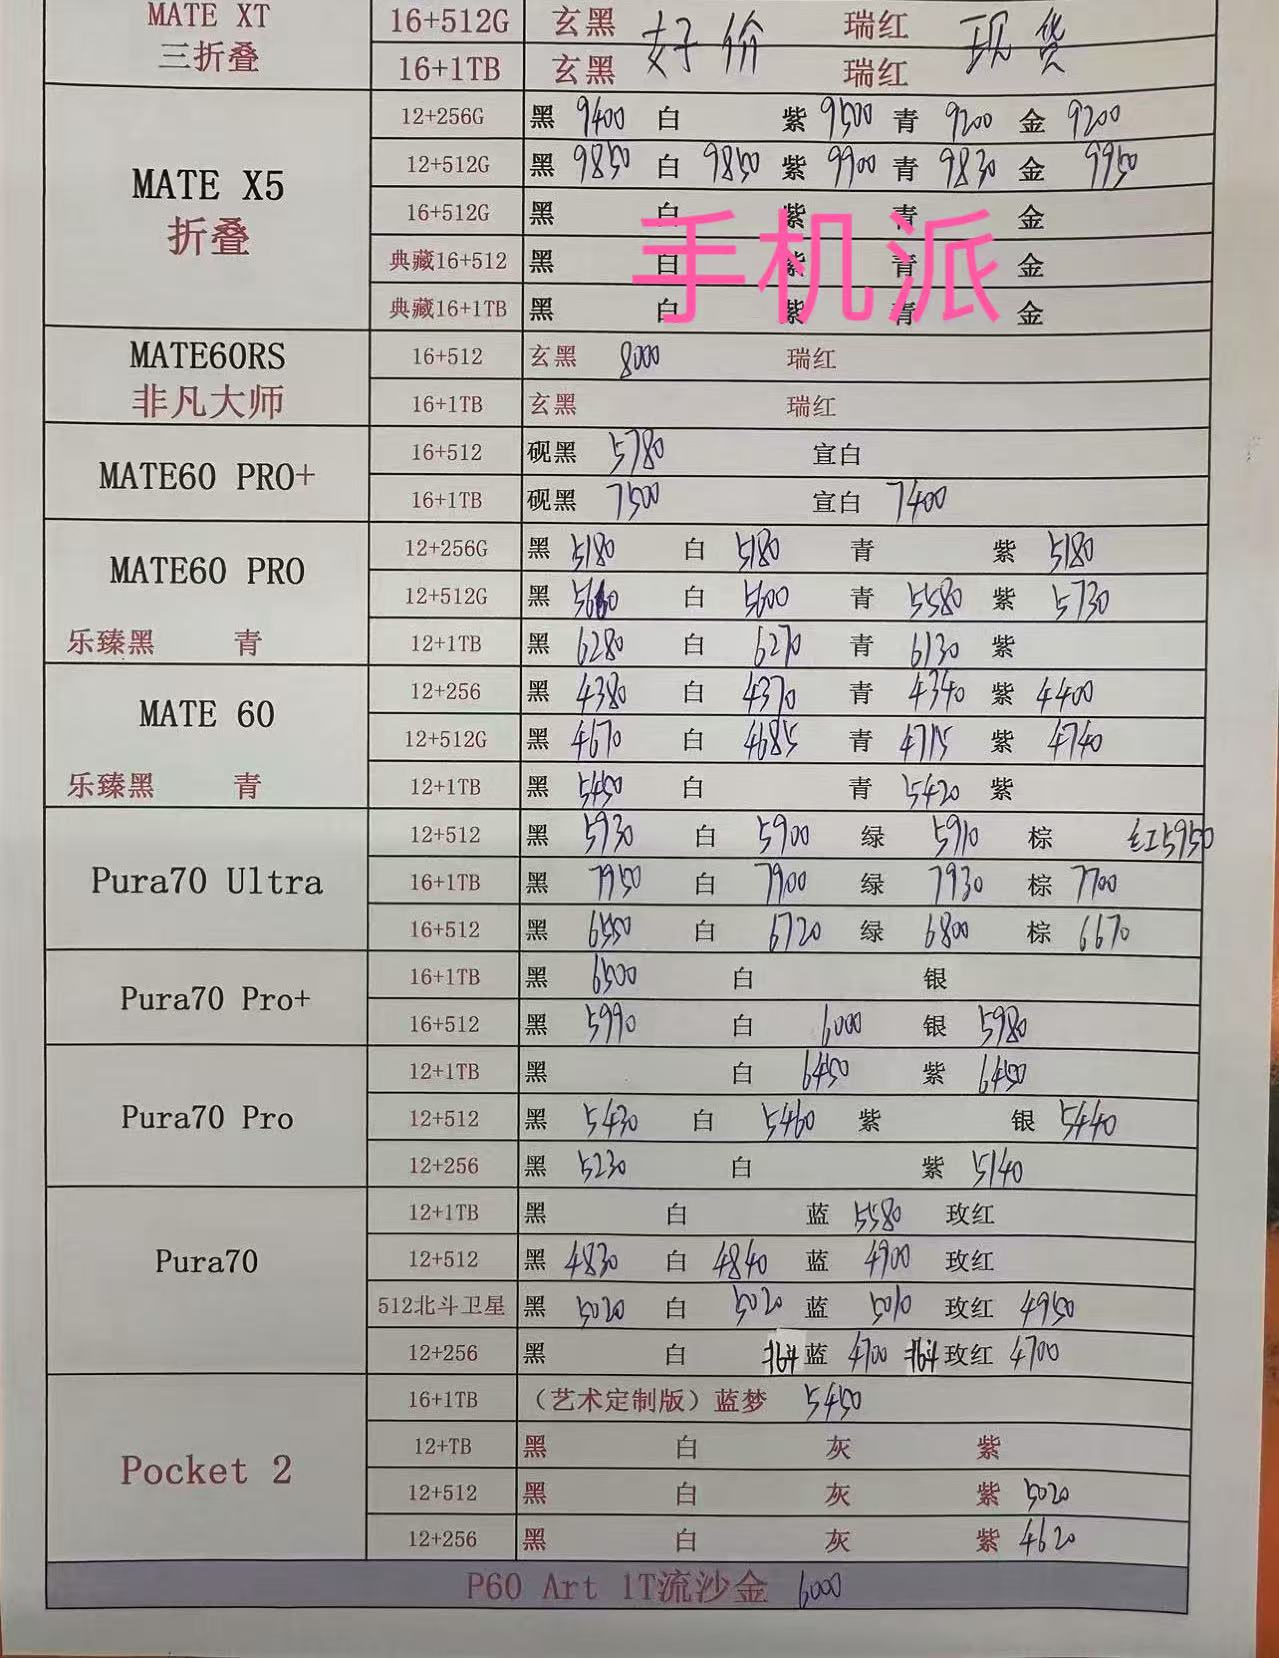 MATE XT 16+512G 玄黑 好价 瑞红 现货
三折叠 16+1TB 玄黑 瑞红
12+256G 黑 9400 白 紫 9500 青 9200 金 9200
MATE X5 12+512G 黑 9850 白 9850 紫 9900 青 9830 金 9950
折叠 16+512G 黑 白 紫 青 金
手机派
典藏16+512 黑 白 紫 青 金
典藏16+1TB 黑 白 紫 青 金
MATE60RS 16+512 玄黑 8000 瑞红
非凡大师 16+1TB 玄黑 瑞红
MATE60 PRO+ 16+512 砚黑 5780 宣白
16+1TB 砚黑 7500 宣白 7400
MATE60 PRO 12+256G 黑 5180 白 5180 青 紫 5180
12+512G 黑 白 5600 青 5580 紫 5730
乐臻黑 青 12+1TB 黑 6280 白 6270 青 6130 紫
MATE 60 12+256 黑 4380 白 4370 青 4340 紫 4400
12+512G 黑 4670 白 4685 青 4715 紫 4740
乐臻黑 青 12+1TB 黑 5450 白 青 5420 紫
Pura70 Ultra 12+512 黑 5930 白 5900 绿 5910 棕 红5950
16+1TB 黑 7950 白 7900 绿 7930 棕 7700
16+512 黑 6550 白 6720 绿 6800 棕 6670
Pura70 Pro+ 16+1TB 黑 6500 白 银
16+512 黑 5990 白 6000 银 5980
Pura70 Pro 12+1TB 黑 白 6450 紫 6450
12+512 黑 5430 白 5460 紫 银 5440
12+256 黑 5230 白 紫 5140
Pura70 12+1TB 黑 白 蓝 5580 玫红
12+512 黑 4830 白 4840 蓝 4900 玫红
512北斗卫星 黑 5020 白 5020 蓝 5010 玫红 4950
12+256 黑 白 北斗 蓝 4700 北斗 玫红 4700
Pocket 2 16+1TB （艺术定制版）蓝梦 5450
12+TB 黑 白 灰 紫
12+512 黑 白 灰 紫 5020
12+256 黑 白 灰 紫 4620
P60 Art 1T流沙金 6000